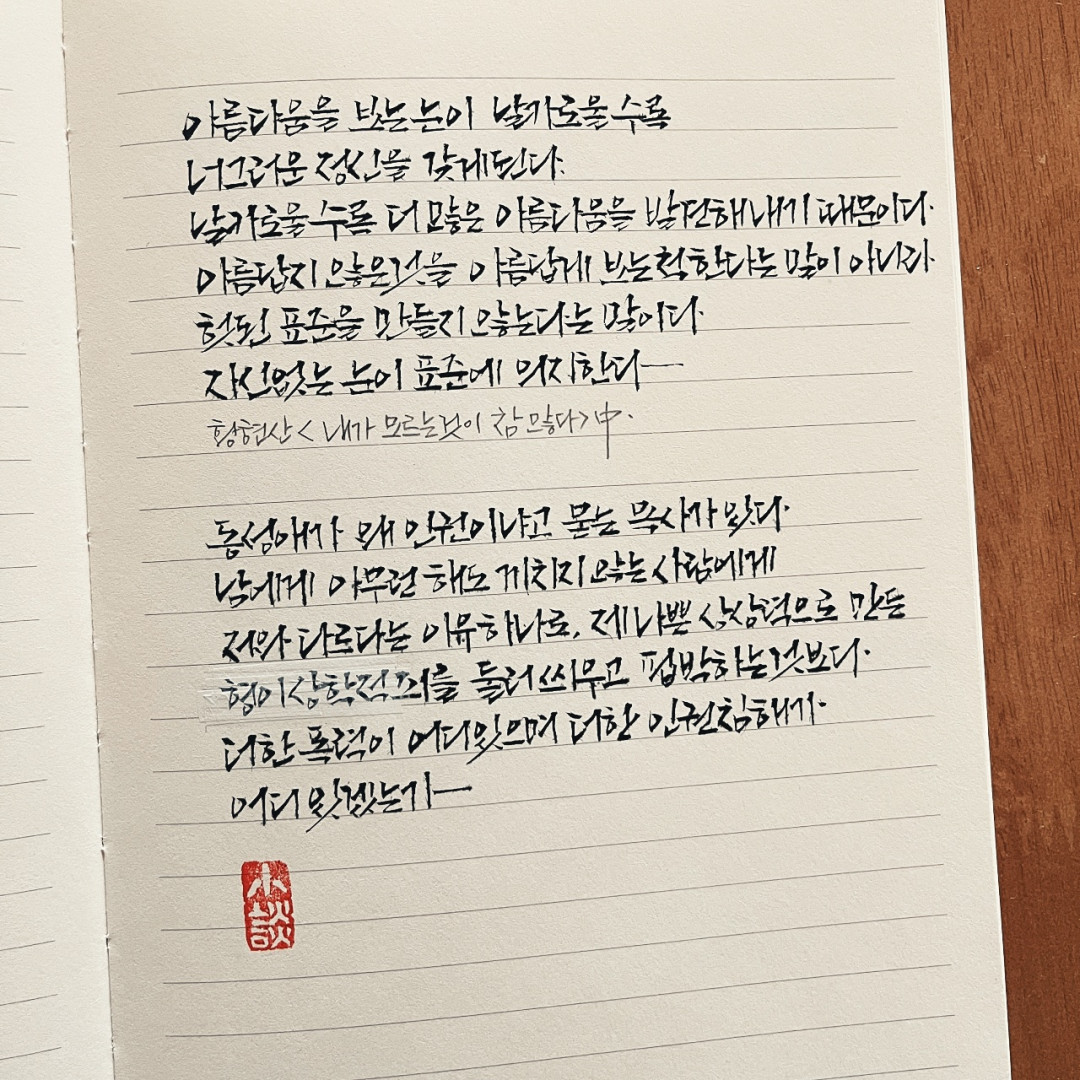 아름다움을 보는 눈이 날카로울수록
너그러운 정신을 갖게된다.
날카로울수록 더 많은 아름다움을 발견해내기 때문이다.
아름답지 않은것을 아름답게 보는척한다는 말이 아니라
헛된 표준을 만들지 않는다는 말이다.
자신없는 눈이 표준에 의지한다—
황현산 < 내가 모르는것이 참 많다 > 中.
동성애가 왜 인권이냐고 묻는 목사가 있다.
남에게 아무런 해도 끼치지 않는 사람에게
저와 다르다는 이유하나로, 제 나쁜 상상력으로 만든
형이상학적 죄를 둘러씌우고 핍박하는것보다.
더한 폭력이 어디있으며 더한 인권침해가.
어디 있겠는가—
小談